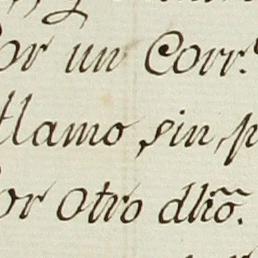 por un Corr.
llamo sin, p
por otro dhõ.